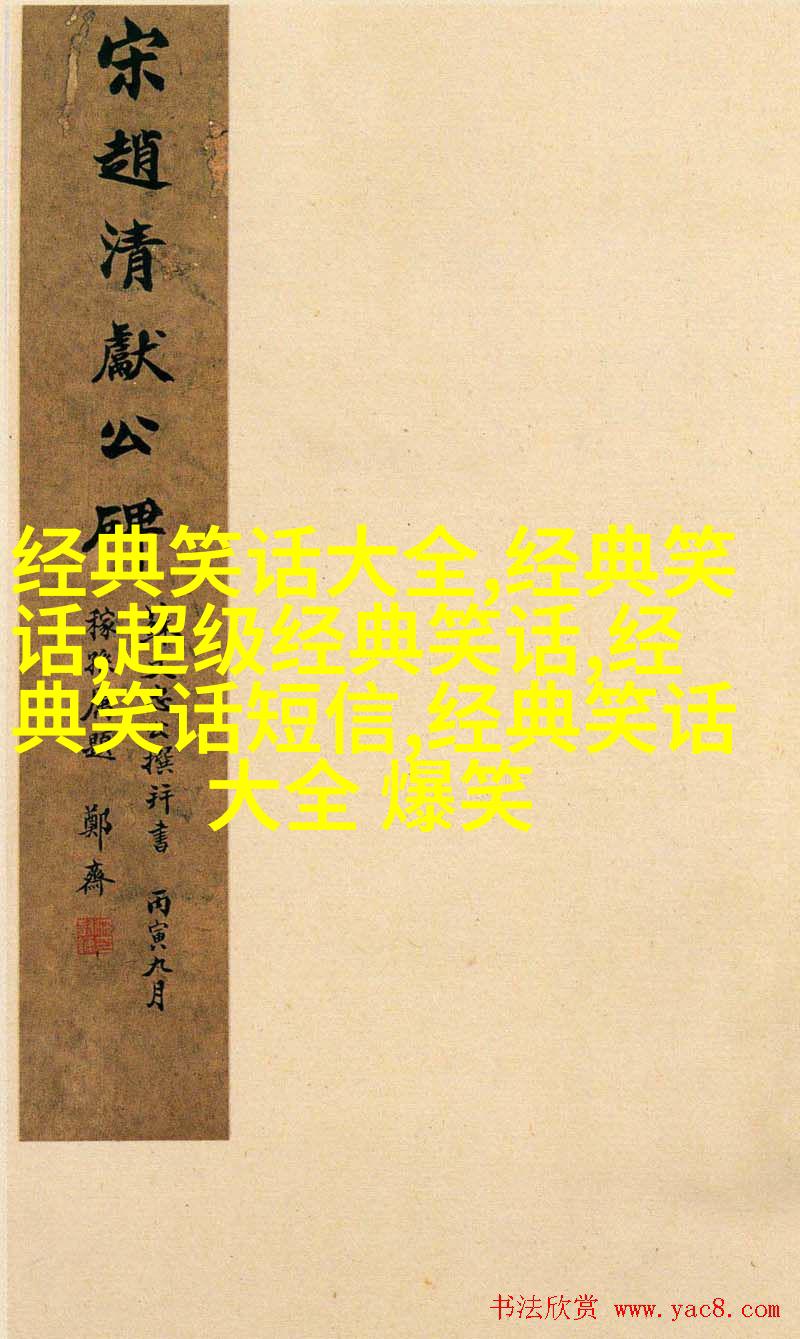 宋趙清獻公碑
公撰并書 丙寅九月
稼孫屬題 鄭齋
经典笑话大全,经典笑
话,超级经典笑话,经
典笑话短信,经典笑话
大全 爆笑
书法欣赏 www.yac8.com